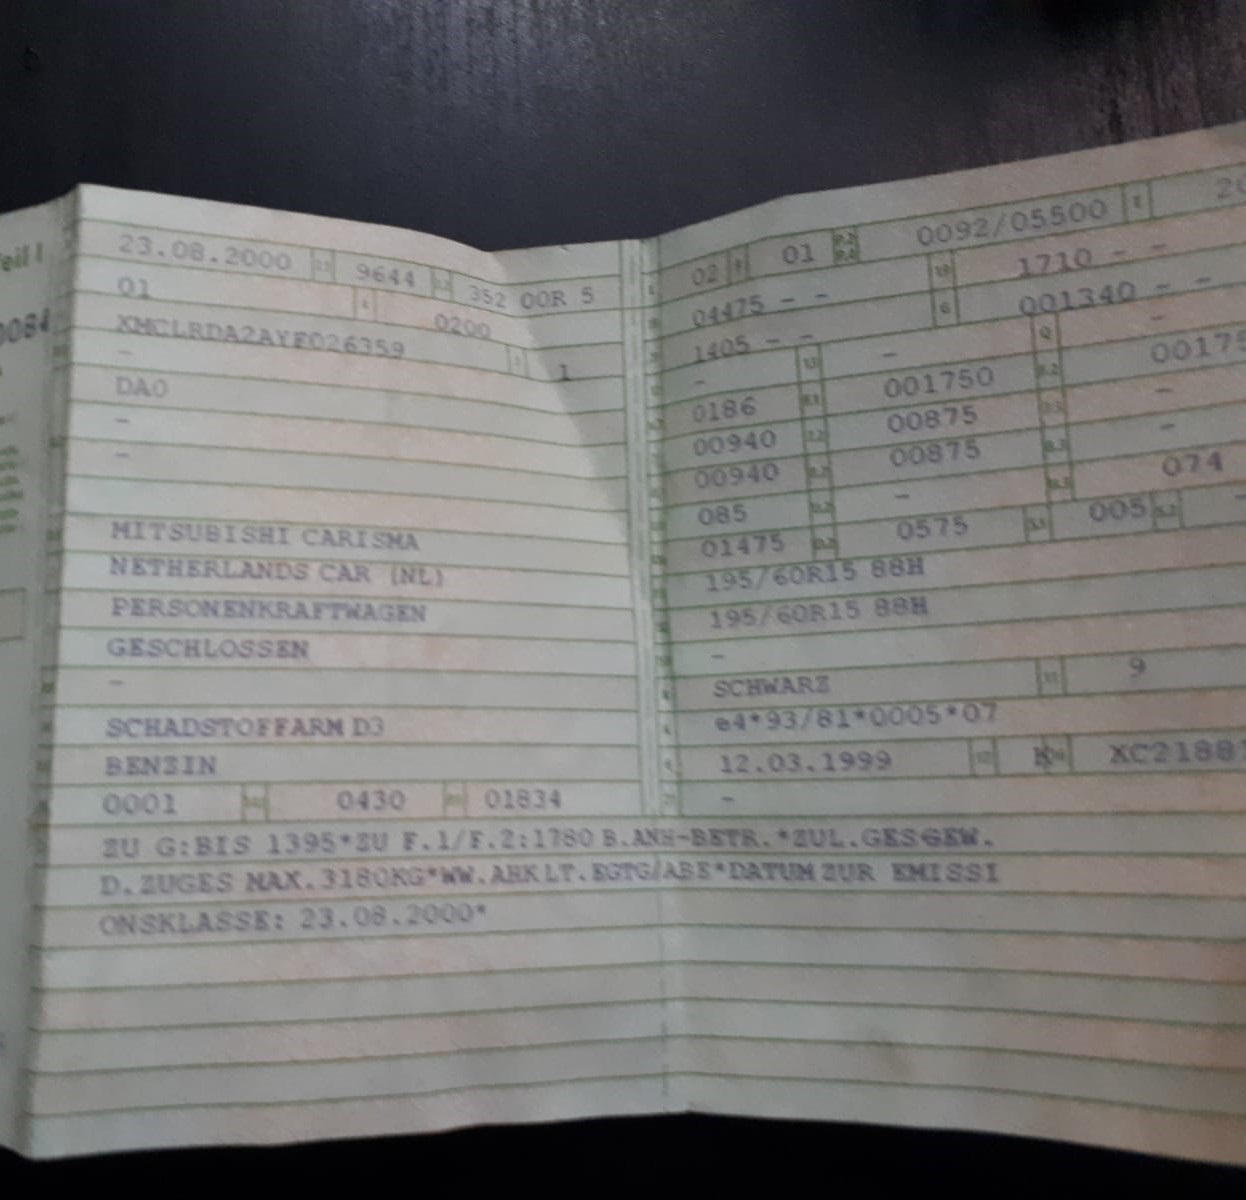 Teil I
23.08.2000 9644 352 00R 5
01 0200
XMCLRDA2AYF026359 1
-
DA0
-
-
MITSUBISHI CARISMA
NETHERLANDS CAR (NL)
PERSONENKRAFTWAGEN
GESCHLOSSEN
-
SCHADSTOFFARM D3
BENZIN
0001 0430 01834
02 01 0092/05500
04475 - - 1710 - -
1405 - - 001340 - -
- - -
0186 001750 00175
00940 00875 -
00940 00875 -
085 - 074
01475 0575 005 -
195/60R15 88H
195/60R15 88H
-
SCHWARZ 9
e4*93/81*0005*07
12.03.1999 K XC2188
-
ZU G:BIS 1395*ZU F.1/F.2:1780 B.ANH-BETR.*ZUL.GESGEW.
D.ZUGES MAX.3180KG*WW.AHK LT.EGTG/ABE*DATUM ZUR EMISSI
ONSKLASSE: 23.08.2000*